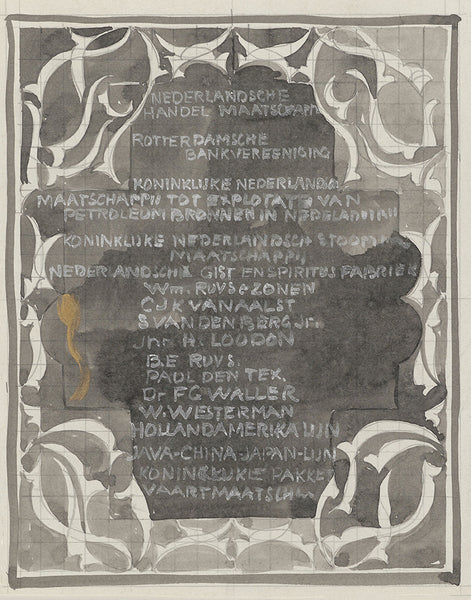 NEDERLANDSCHE
HANDEL MAATSCHAPPIJ
ROTTERDAMSCHE
BANKVEREENIGING
KONINKLIJKE NEDERLANDS
MAATSCHAPPIJ TOT EXPLOTATIE VAN
PETROLEUM BRONNEN IN
KONINKLIJKE NEDERLANDSCH STOOM
MAATSCHAPPIJ
NEDERLANDSCHE GIST EN SPIRITUS FABRIEK
Wm. RUYS & ZONEN
C.J.K VAN AALST
S VAN DEN BERG Jr.
Jhr. H. LOUDON
B.E RUYS.
PAUL DEN TEX.
Dr F G WALLER
W. WESTERMAN
HOLLANDAMERIKA LIJN
JAVA-CHINA-JAPAN-LIJN
KONINKLIJKE PAKKET
VAARTMAATSCH